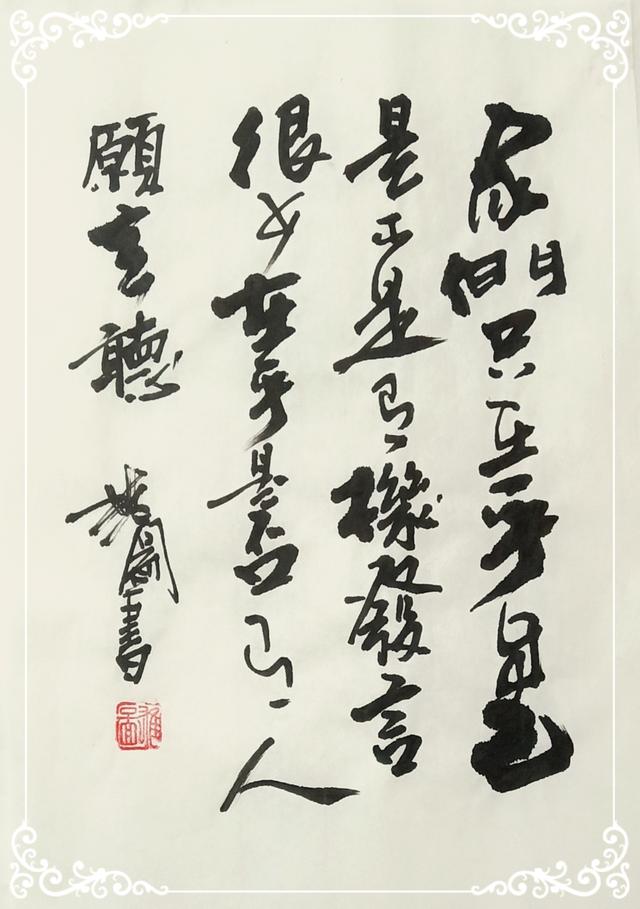 家們只在乎自己
是不是有機發言
很少在乎是否有人
願意聽
圖書